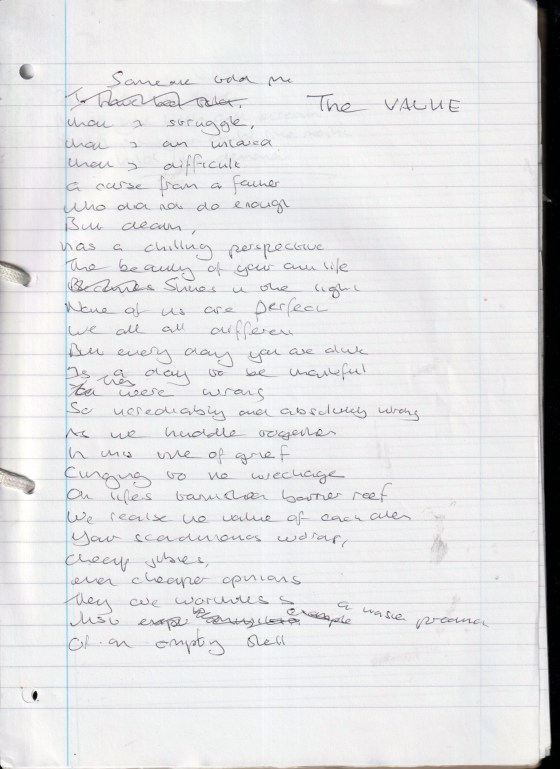 Someone told me
The VALUE
struggle,
that is an
that is difficult
a curse from a father
who did not do enough
But death,
has a chilling perspective
The beauty of your own life
Shines in the light
None of us are perfect
we all all different
But every day you are alive
Is a day to be thankful
They were wrong
So incrediably and absolutely wrong
As we huddle together
In this time of grief
Clinging to the wreckage
On lifes barrier reef
We realise the value of each other
Your words,
cheap jibes,
even cheaper opinions
They are
Just a waste product
Of an empty shell